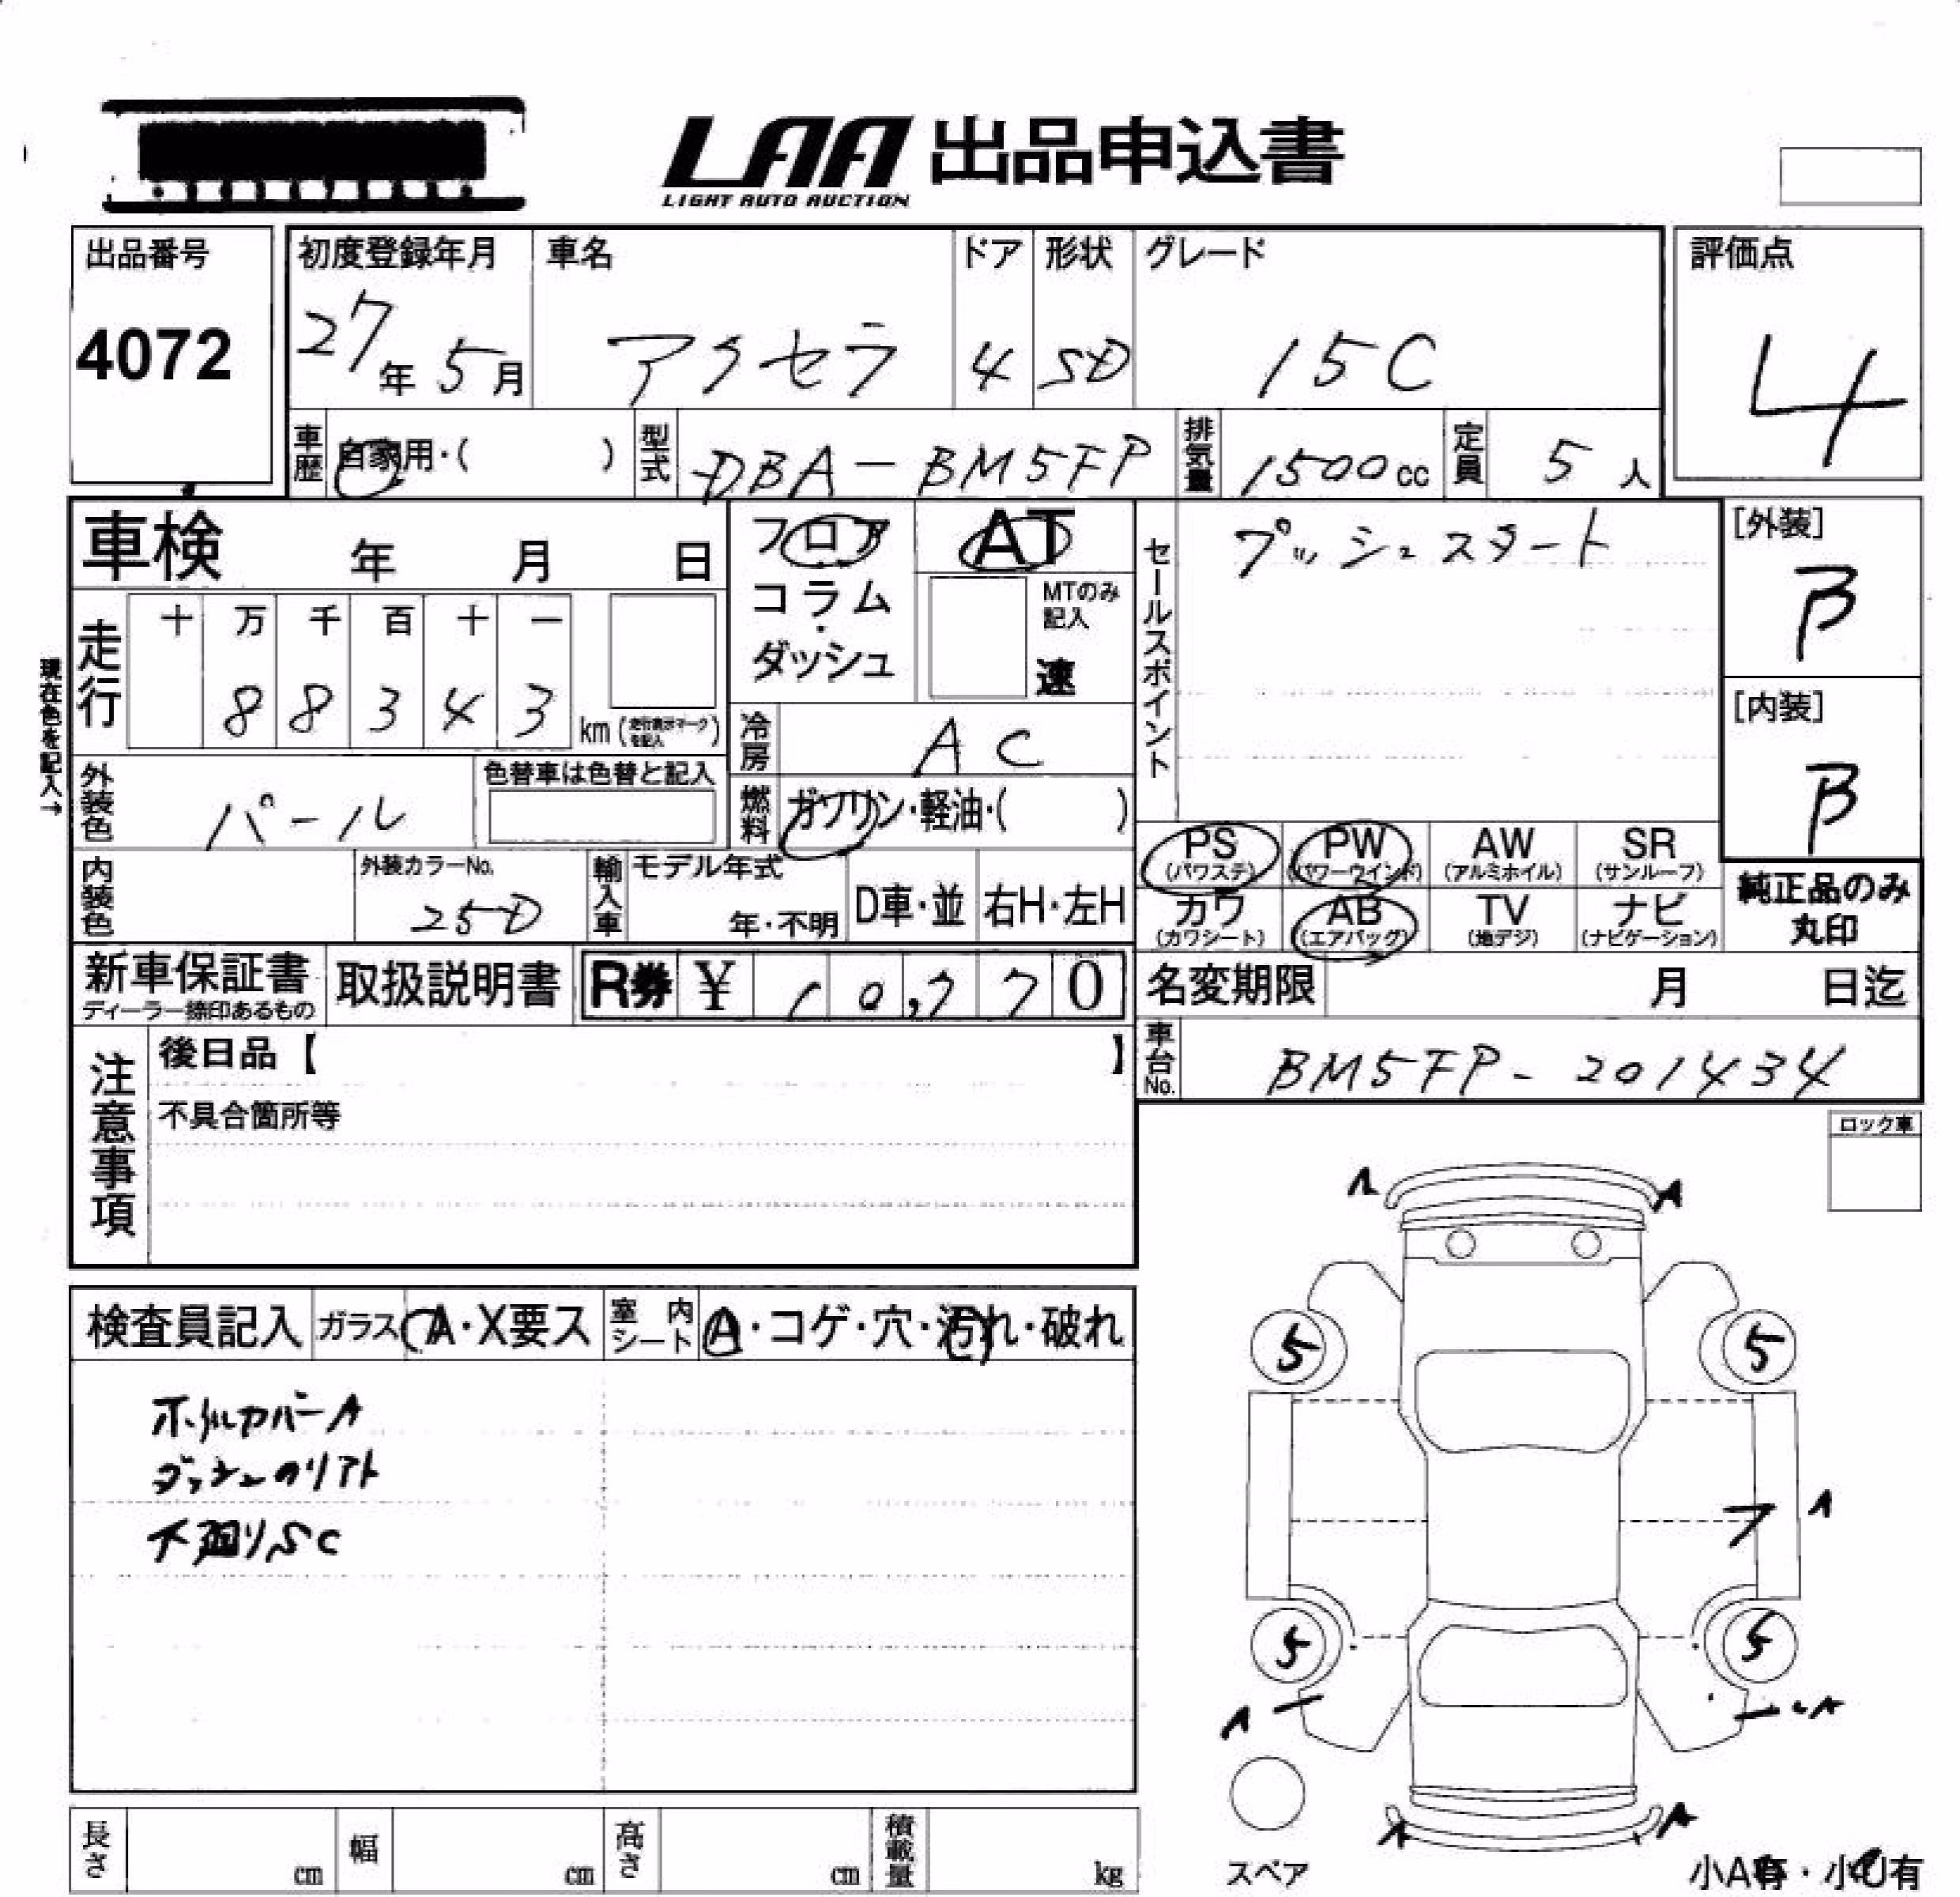 LAA 出品申込書
LIGHT AUTO AUCTION
出品番号
4072
初度登録年月
27年 5月
車名
アクセラ
ドア
4
形状
SD
グレード
15C
評価点
4
車歴 自家用・( )
型式 DBA-BM5FP
排気量 1500cc
定員 5人
車検 年 月 日
フロア
コラム・
ダッシュ
AT
MTのみ記入
速
セールスポイント
プッシュスタート
[外装]
B
[内装]
B
現在色を記入→
走行
十 万 千 百 十 一
8 8 3 4 3
km (走行表示マークを記入)
冷房 AC
外装色 パール
色替車は色替と記入
燃料 ガソリン・軽油・( )
PS (パワステ)
PW (パワーウインド)
AW (アルミホイル)
SR (サンルーフ)
カワ (カワシート)
AB (エアバッグ)
TV (地デジ)
ナビ (ナビゲーション)
純正品のみ
丸印
内装色
外装カラーNo.
25D
輸入車
モデル年式
年・不明
D車・並
右H・左H
新車保証書
ディーラー捺印あるもの
取扱説明書
R券 ¥ 10,770
名変期限 月 日迄
車台No. BM5FP-201434
注意事項
後日品【 】
不具合箇所等
ロック車
A A
検査員記入
ガラス A・X要ス
室内シート A・コゲ・穴・汚れ・破れ
ホイルカバーA
ダッシュのリアト
下廻りSC
5 5
A
5 5
A A
A A
スペア
小A有・小U有
長さ cm
幅 cm
高さ cm
積載量 kg